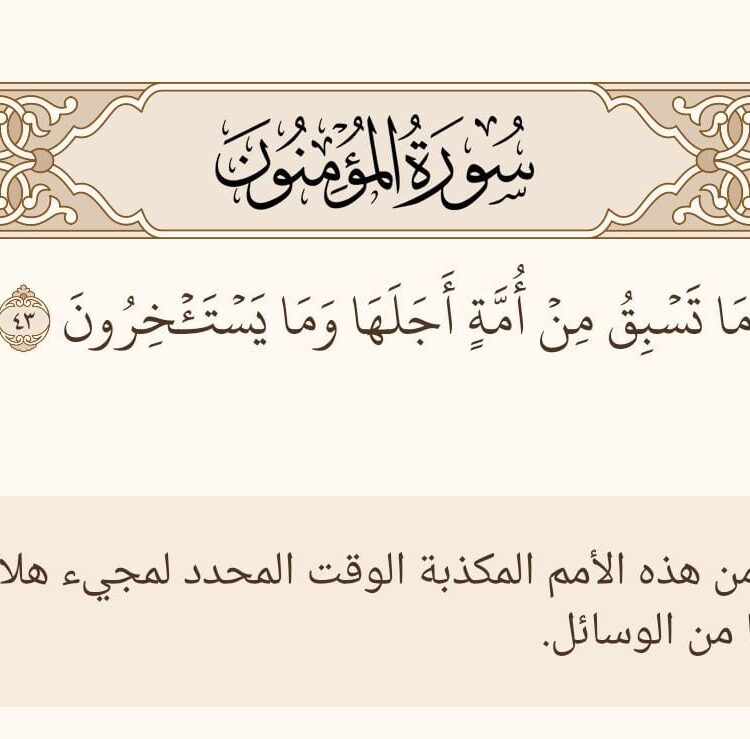 سُورَةُ المُؤْمِنُونَ
مَا تَسۡبِقُ مِنۡ أُمَّةٍ أَجَلَهَا وَمَا يَسۡتَـٔۡخِرُونَ ٤٣
من هذه الأمم المكذبة الوقت المحدد لمجيء
من الوسائل.